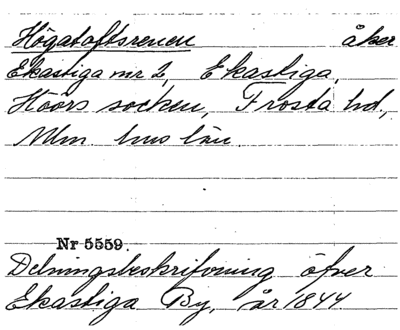 Högatoftsrenen åker
Ekastiga nr 2, Ekastiga,
Höörs socken, Frosta hd,
Mlm. hus län.
Nr 5559.
Delningsbeskrifvning öfver
Ekastiga By, år 1844.